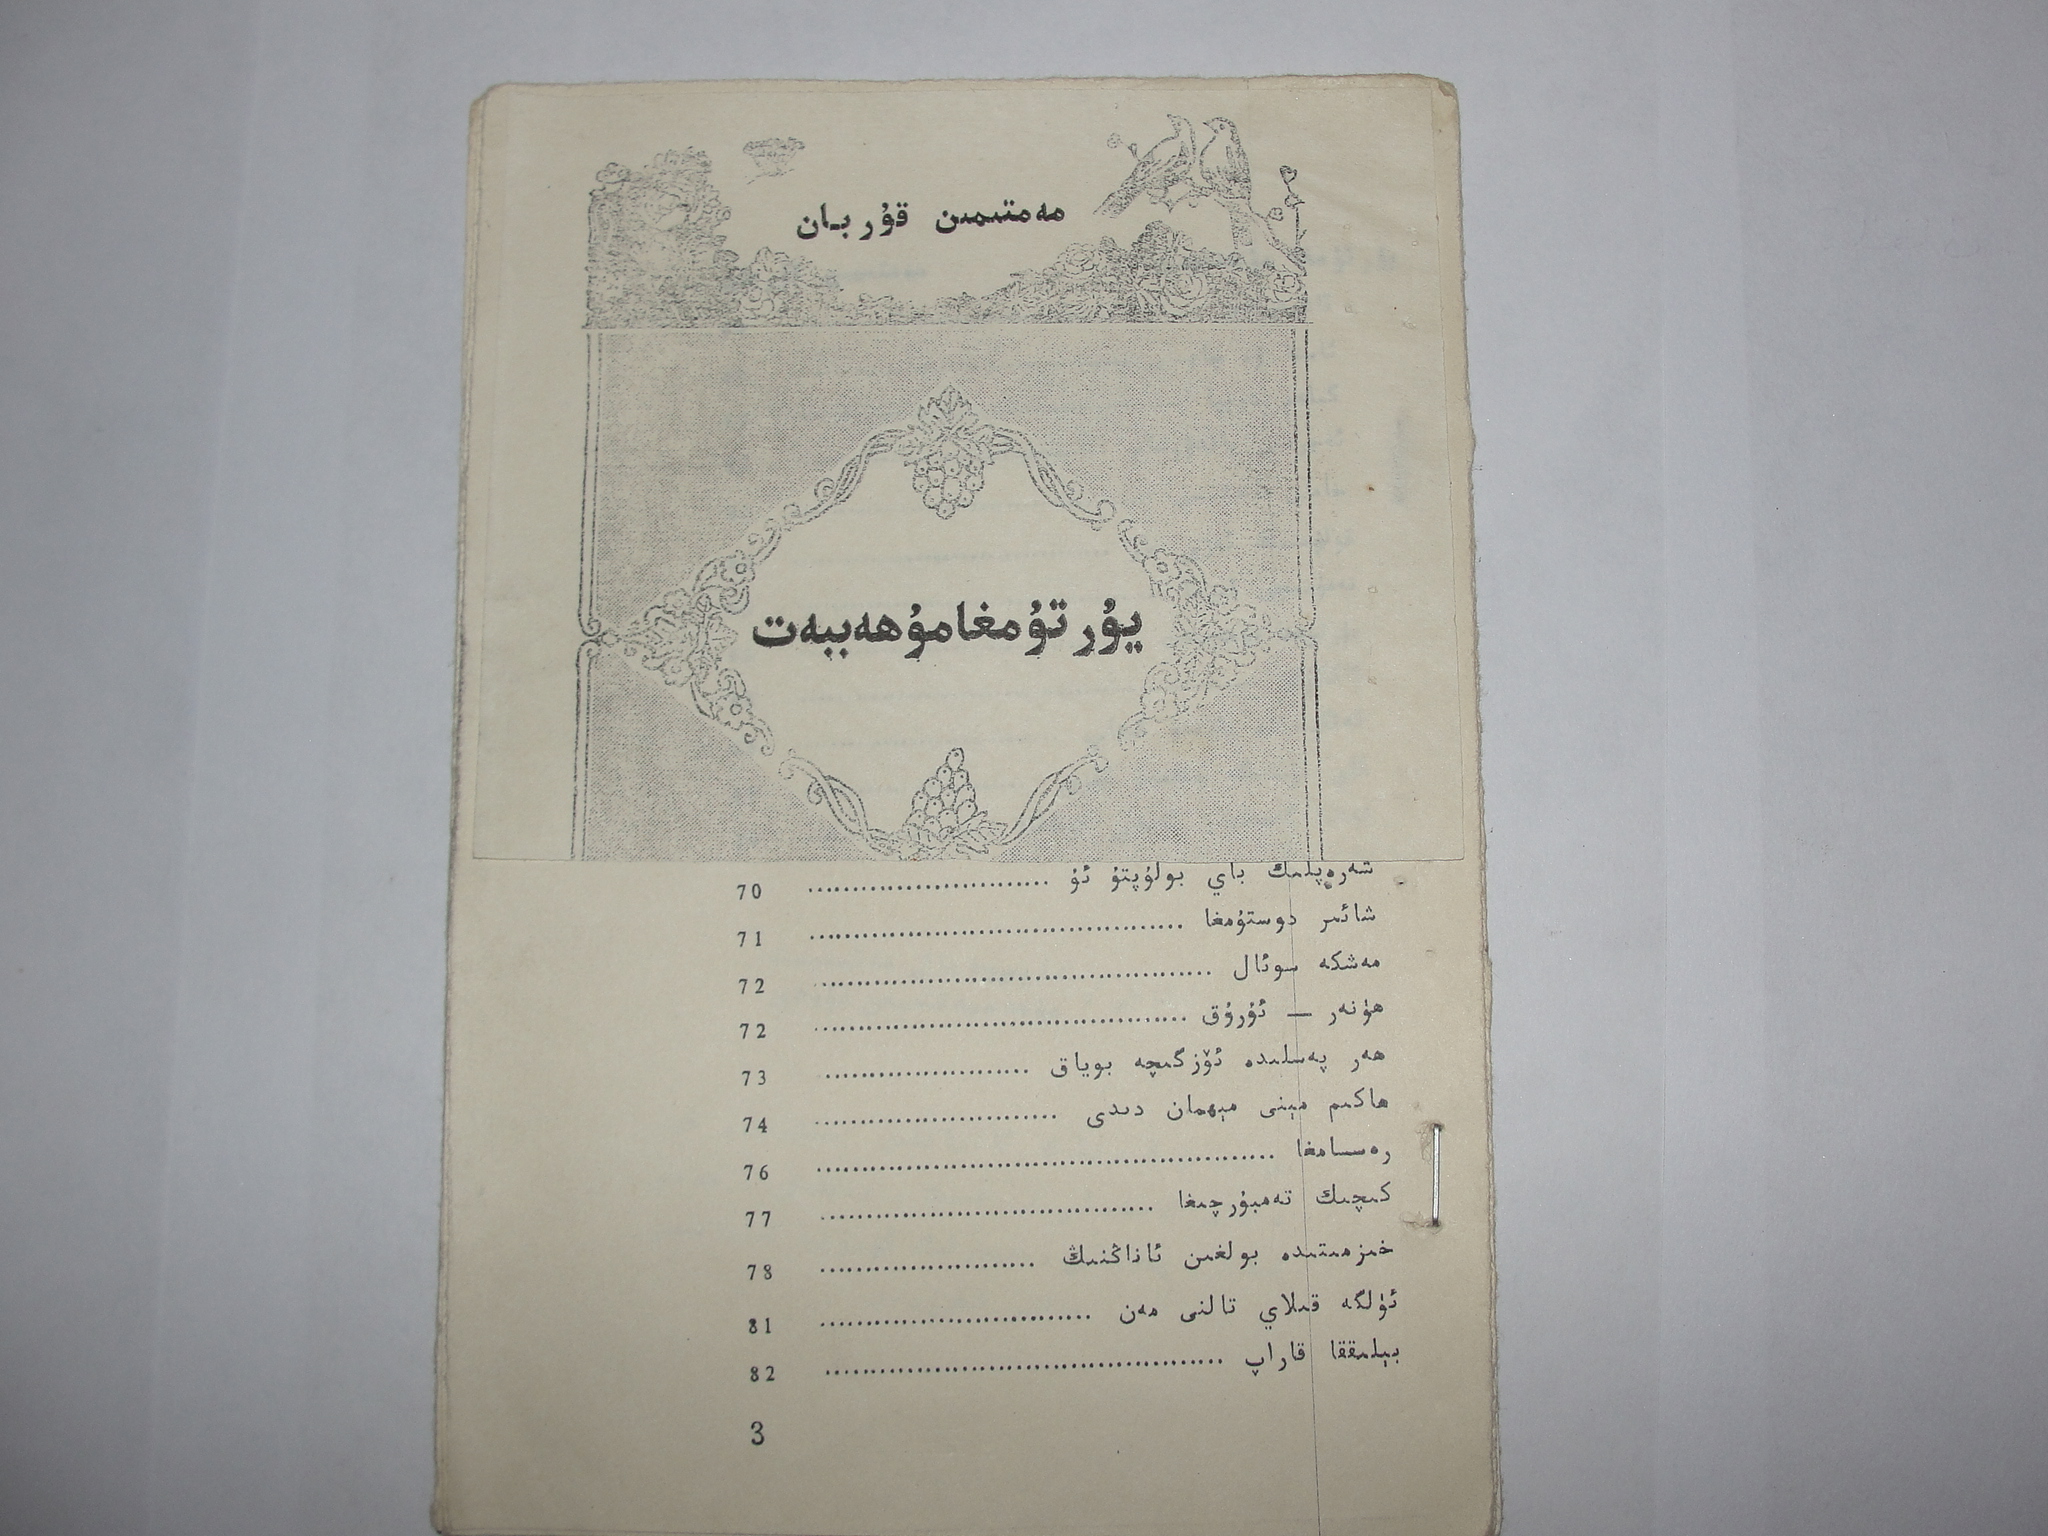 مەمتىمىن قۇربان
يۇرتۇمغا مۇھەببەت
شەرەپلىك باي بولۇپتۇ ئۇ .......................... 70
شائىر دوستۇمغا .......................................... 71
مەشكە سوئال .............................................. 72
ھۈنەر — ئۇرۇق ......................................... 72
ھەر پەسلىدە ئۆزگىچە بوياق ....................... 73
ھاكىم مېنى مېھمان دىدى ........................... 74
رەسسامغا ................................................... 76
كىچىك تەمبۇرچىغا ..................................... 77
خىزمىتىدە بولغىن ئاناڭنىڭ ........................ 78
ئۈلگە قىلاي تالنى مەن .............................. 81
بېلىققا قاراپ ............................................. 82
3